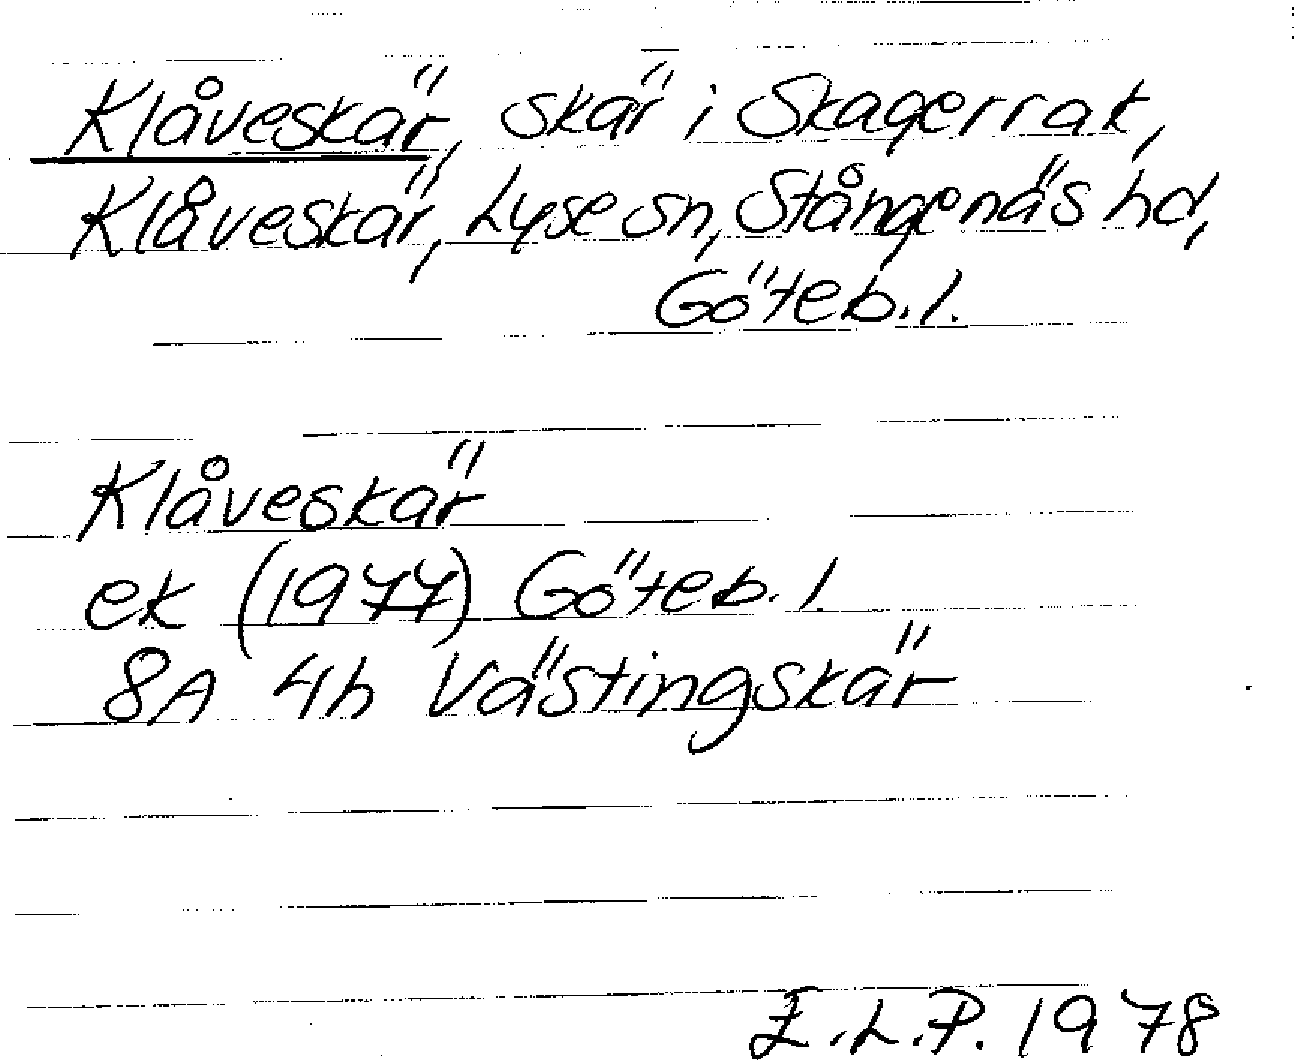 Klåveskär, skär i Skagerrak,
Klåveskär, Lyse sn, Stångenäs hd,
Göteb. l.
Klåveskär
ek (1977) Göteb. l.
8A 4h Västingskär
E.L.P. 1978